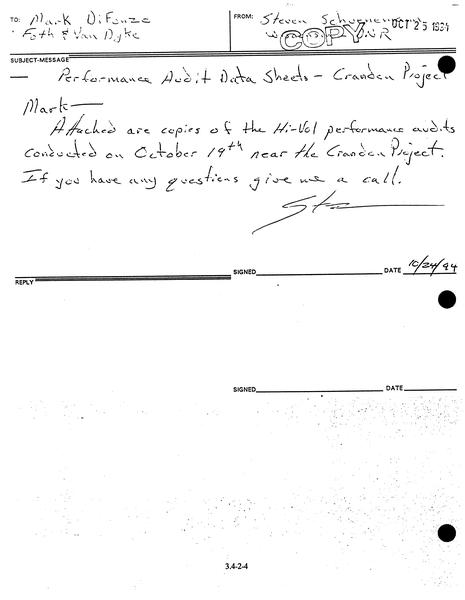 TO: Mark DiFonzo
Foth & Van Dyke
FROM: Steven
COPY
OCT 25 1994
SUBJECT-MESSAGE
Performance Audit Data Sheets - Crandon Project
Mark—
Attached are copies of the Hi-Vol performance audits
conducted on October 19th near the Crandon Project.
If you have any questions give me a call.
Steve
SIGNED DATE 10/24/94
REPLY
SIGNED DATE
3.4-2-4